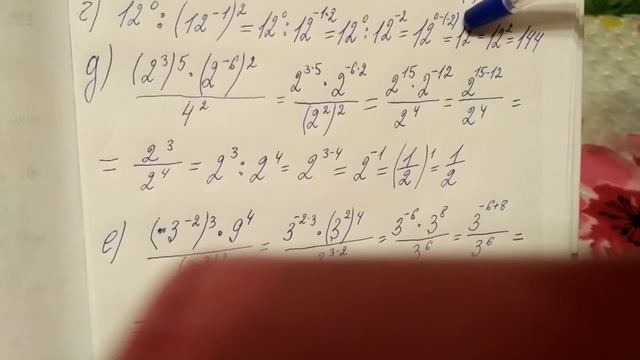 г) 12⁰ : (12⁻¹)² = 12⁰ : 12⁻¹·² = 12⁰ : 12⁻² = 12⁰⁻⁽⁻²⁾ = 12² = 144
д) (2³)⁵ · (2⁻⁶)² / 4² = 2³·⁵ · 2⁻⁶·² / (2²)² = 2¹⁵ · 2⁻¹² / 2⁴ = 2¹⁵⁻¹² / 2⁴ =
= 2³ / 2⁴ = 2³ : 2⁴ = 2³⁻⁴ = 2⁻¹ = (1/2)¹ = 1/2
е) (3⁻²)³ · 9⁴ / = 3⁻²·³ · (3²)⁴ / 3³·² = 3⁻⁶ · 3⁸ / 3⁶ = 3⁻⁶⁺⁸ / 3⁶ =
=